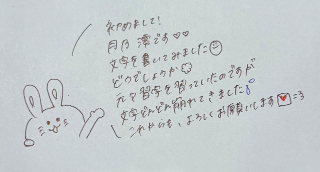 初めまして!
月乃 澪です♡♡
文字を書いてみました☺
どうでしょうか
元々習字を習っていたのですが
文字どんどん崩れてきました
これからも、よろしくお願いします